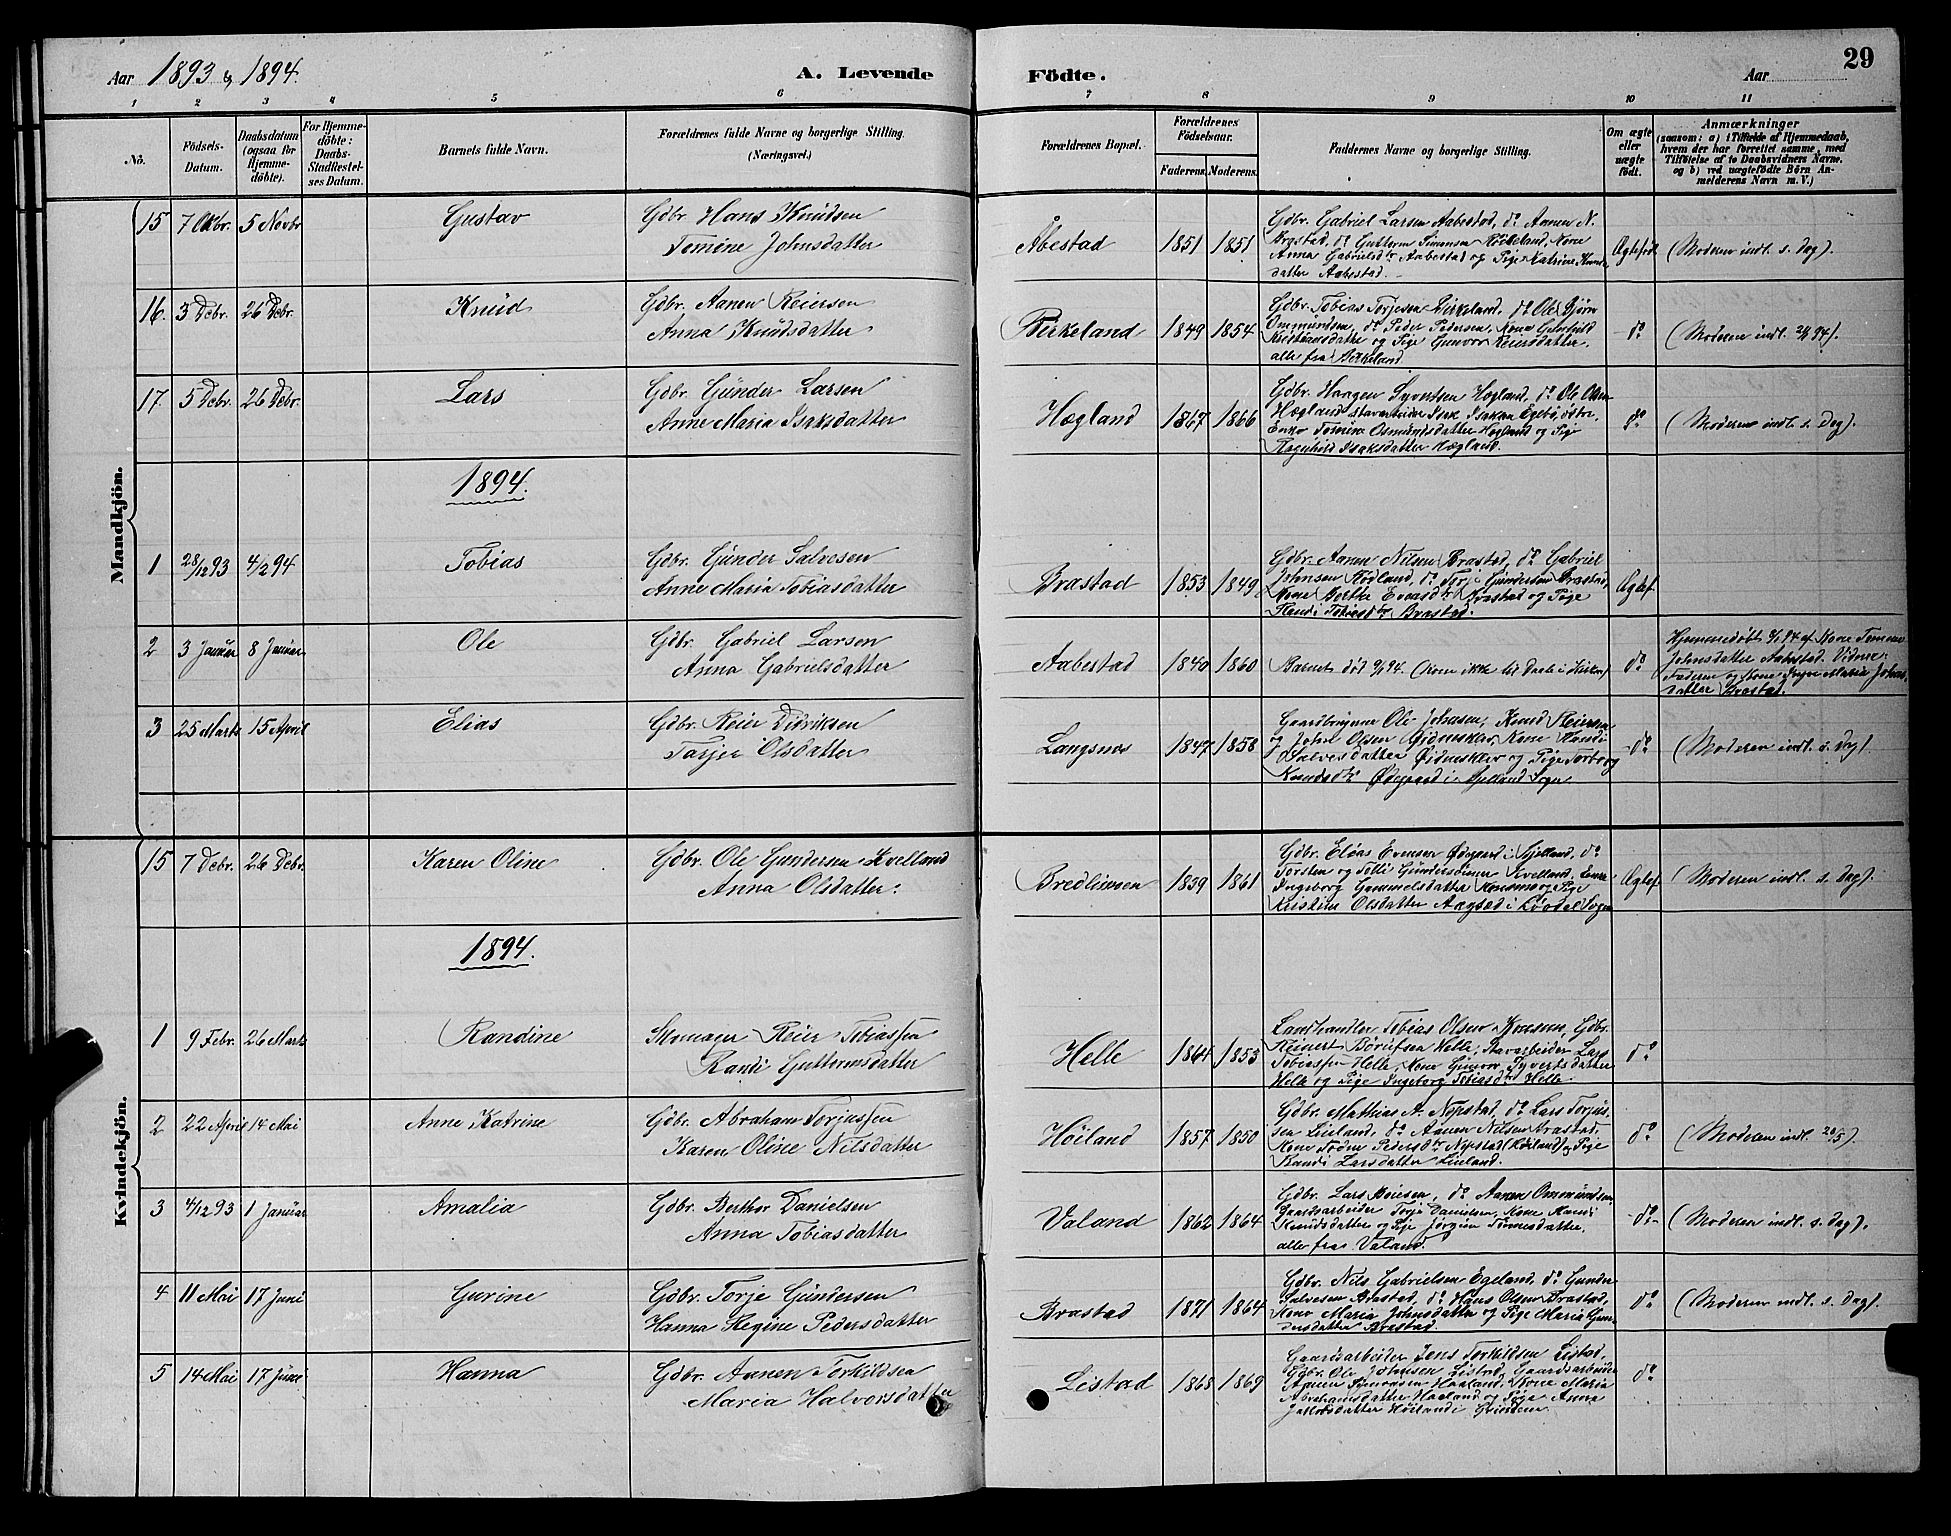 Aar 1893 & 1894. A. Levende Födte. Aar 29
1 2 3 4 5 6 7 8 9 10 11
No. Födsels-Datum. Daabsdatum (ogsaa for Hjemme-döbte). For Hjemme-döbte: Daabs-Stadfæstel-ses Datum. Barnets fulde Navn. Forældrenes fulde Navne og borgerlige Stilling. (Næringsvei.) Forældrenes Bopæl. Forældrenes Födselsaar. Faderens. Moderens. Faddernes Navne og borgerlige Stilling. Om ægte eller uægte født. Anmærkninger
(saasom: a) i Tilfælde af Hjemmedaab, hvem der har forrettet samme, med Tilföielse af to Daabsvidners Navne, og b) ved uægtefödte Börn An-melderens Navn m. V.)
Mandkjön.
15 7 Oktbr. 5 Novbr Gustav Gdbr. Hans Knudsen
Tomine Johnsdatter
Åbestad 1851 1851
Gdbr. Gabriel Larsen Aabestad, do Aanen N.
Brastad, do Guttorm Simonsen Röikeland, Kone
Anna Gabrielsdtr Aabestad og Pige Katrine
datter Aabestad.
Ægtefødt (Moderen indl. s. Dag).
16. 3 Debr. 26 Debr. Knud Gdbr. Aanen Reiersen
Anna Knudsdatter
Birkeland 1849 1854
Gdbr. Tobias Torjesen Birkeland, do Ole Bjørn
Ommundsen, do Peder Pedersen, Kone
Kristiansdatter og Pige Gunvor Reiersdatter,
alle fra Birkeland.
do (Moderen indl. 94).
17. 5 Debr. 26 Debr. Lars Gdbr. Gunder Larsen
Anne Maria Isaksdatter
Hægland 1867 1866
Gdbr. Haagen Syvertsen Hægland, do Ole Olsen
Hægland, Stavarbeider Isak Isaksen
Enke Tomine Osmundsdatter Hægland og Pige
Ragnhild Isaksdatter Hægland.
do (Moderen indl. s. Dag).
1894.
1 28/12 93 4/2 94 Tobias Gdbr. Gunder Salvesen
Anne Maria Tobiasdatter
Brastad 1853 1849
Gdbr. Aanen Nilsen Brastad, do Gabriel
Johnsen Rödland, do Torje Gundersen Brastad,
Kone Berthe Evensdtr Brastad og Pige
Randi Tobiasdtr Brastad.
Ægtef.
2 3 Januar 8 Januar Ole Gdbr. Gabriel Larsen
Anna Gabrielsdatter
Aabestad 1840 1860
Barnet død 94. ikke til Daab i Kirken
do
Hjemmedøbt 94 af Kone Tomine
Johnsdatter Aabestad. Vidner:
Faderen og Kone Inger Maria Johns-
datter Brastad.
3 25 Marts 15 April Elias Gdbr. Reier Didriksen
Tarjer Olsdatter
Langsnes 1847 1858
Gaardbrugerne Ole Johnsen, Knud Reiersen
og John Olsen Øidneskler, Kone Randi
Salvesdatter Øidneskler og Pige Torborg
Knudsdtr Ødegaard i Bjelland Sogn
do (Moderen indl. s. Dag)
Kvindekjön.
15 7 Debr. 26 Debr. Karen Oline Gdbr. Ole Gundersen Kvelland
Anna Olsdatter.
1839 1861
Gdbr. Elias Evensen Ødegaard i Bjelland, do
Torsten og Tolli Gundersønner Kvelland,
Ingeborg Gummelsdatter og Pige
Kristine Olsdatter i Løvdal Sogn
Ægtef. (Moderen indl. s. Dag).
1894.
1 9 Febr. 26 Marts Randine Skomager Reier Tobiassen
Randi Guttormsdatter
Helle 1864 1853
Landhandler Tobias Olsen, Gdbr.
Reinert Helle, Stavarbeider Lars
Tobiassen Helle, Kone Gunvor Syvertsdatter
Helle og Pige Ingeborg Tobiasdtr Helle.
do
2 22 April 14 Mai Anne Katrine Gdbr. Abraham Torjussen
Karen Oline Nilsdatter
Höiland 1857 1850
Gdbr. Mathias A. Nepstad, do Lars Torjus-
sen Lieland, do Aanen Nilsen Brastad,
Kone Pedersdtr Nepstad og Pige
Randi Larsdatter Lieland.
do (Moderen indl. 20/5).
3 4/12 93 1 Januar Amalia Gdbr. Berthor Danielsen
Anna Tobiasdatter
Valand 1862 1864
Gdbr. Lars, do Aanen Ommundsen
Gaardsarbeider Torje Danielsen, Kone Randi
Knudsdatter og Pige Jørgine Tønnesdatter,
alle fra Valand.
-do- (Moderen indl. s. Dag).
4 11 Mai 17 Juni Gurine Gdbr. Torje Gundersen
Hanna Regine Pedersdatter
Brastad 1871 1864
Gdbr. Nils Gabrielsen Egeland, do Gunder
Salvesen Brastad, do Hans Olsen Brastad,
Kone Maria Johnsdatter og Pige Maria Gun-
dersdatter Brastad.
do (Moderen indl. s. Dag).
5 14 Mai 17 Juni Hanna Gdbr. Aanen Torkildsen
Maria Halvorsdatter
Listad 1868 1869
Gaardsarbeider Jens Torkildsen Listad,
Gdbr. Ole Johnsen Listad, Gaardsarbeider
Aanen Simonsen Haaland, Kone Maria
Abrahamsdatter Haaland og Pige Anna
Jakobsdatter Höiland i Grindem
do